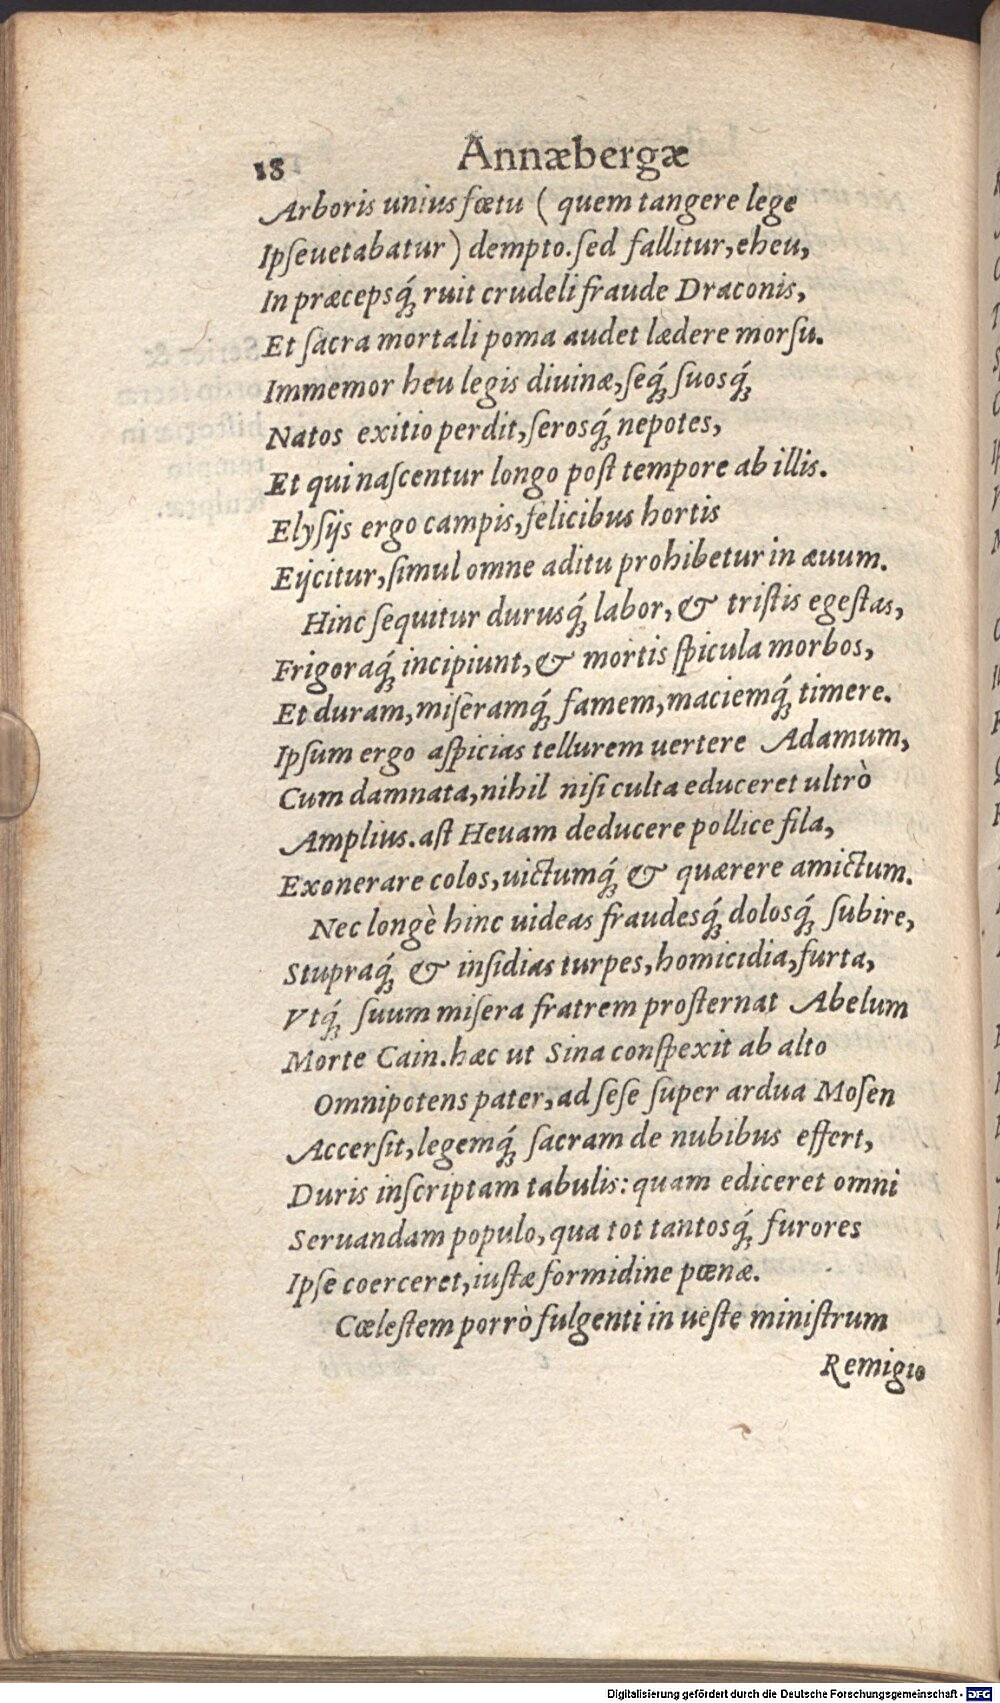 18 Annæbergæ
Arboris unius fœtu ( quem tangere lege
Ipſe uetabatur ) dempto. ſed fallitur, eheu,
In præcepsq́ꝫ ruit crudeli fraude Draconis,
Et ſacra mortali poma audet lædere morſu.
Immemor heu legis diuinæ, ſeq́ꝫ ſuosq́ꝫ
Natos exitio perdit, ſerosq́ꝫ nepotes,
Et qui naſcentur longo poſt tempore ab illis.
Elyſijs ergo campis, felicibus hortis
Eijcitur, ſimul omne aditu prohibetur in æuum.
Hinc ſequitur durusq́ꝫ labor, & triſtis egeſtas,
Frigoraq́ꝫ incipiunt, & mortis ſpicula morbos,
Et duram, miſeramq́ꝫ famem, maciemq́ꝫ timere.
Ipſum ergo aſpicias tellurem uertere Adamum,
Cum damnata, nihil niſi culta educeret ultrò
Amplius. aſt Heuam deducere pollice fila,
Exonerare colos, uictumq́ꝫ & quærere amictum.
Nec longè hinc uideas fraudesq́ꝫ dolosq́ꝫ ſubire,
Stupraq́ꝫ & inſidias turpes, homicidia, furta,
Vtq́ꝫ ſuum miſera fratrem proſternat Abelum
Morte Cain. hæc ut Sina conſpexit ab alto
Omnipotens pater, ad ſeſe ſuper ardua Moſen
Accerſit, legemq́ꝫ ſacram de nubibus effert,
Duris inſcriptam tabulis: quam ediceret omni
Seruandam populo, qua tot tantosq́ꝫ furores
Ipſe coerceret, iuſtæ formidine pœnæ.
Cœleſtem porrò fulgenti in ueſte miniſtrum
Remigio
Digitalisierung gefördert durch die Deutsche Forschungsgemeinschaft - DFG